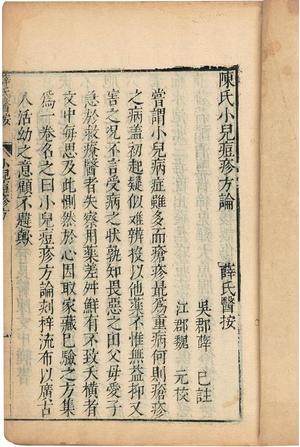 陳氏小兒痘疹方論　薛氏醫按
吳郡薛　己註
江郡魏　元校
嘗謂小兒病症雖多而瘡疹最為重病何則瘡疹
之病蓋初起疑似難辨投以他藥不惟無益抑又
害之況不言受病之狀孰知畏惡之由父母愛子
急於救療醫者失察用藥差舛鮮有不致夭橫者
文中每思及此惻然於心因取家藏已驗之方集
為一卷名之曰小兒痘疹方論刻梓流布以廣古
人活幼之意顧不韙歟
薛氏醫按
小兒痘疹方